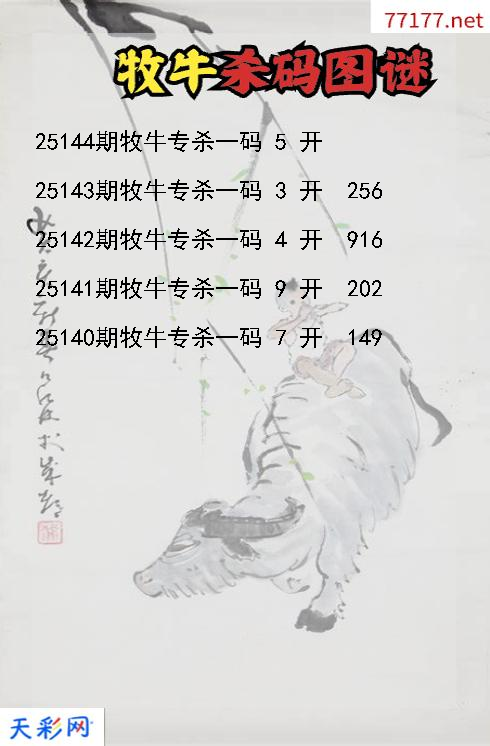 77177.net
牧牛杀码图谜
25144期牧牛专杀一码 5 开
25143期牧牛专杀一码 3 开 256
25142期牧牛专杀一码 4 开 916
25141期牧牛专杀一码 9 开 202
25140期牧牛专杀一码 7 开 149
天彩网